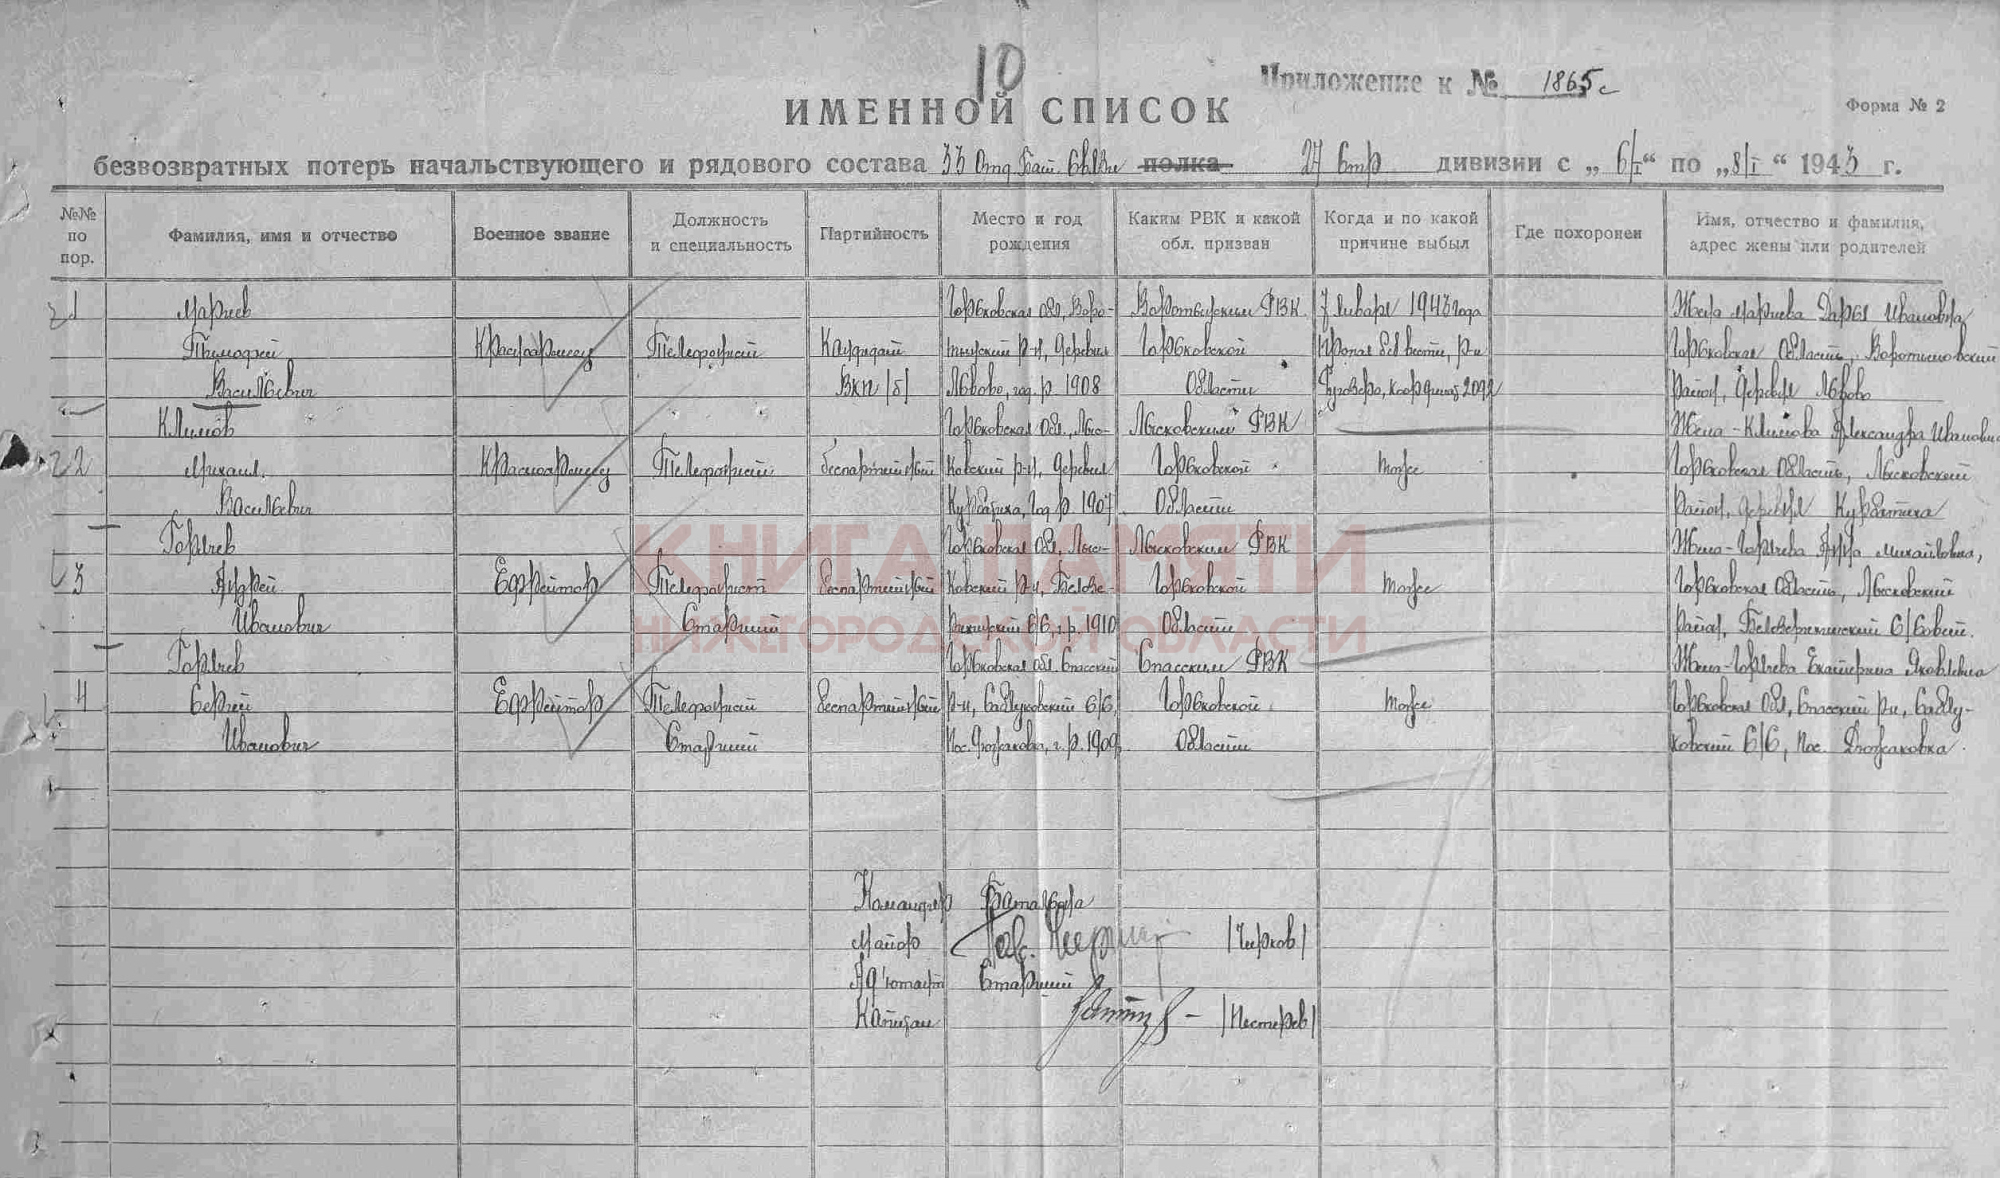 10
Приложение к № 1865с
ИМЕННОЙ СПИСОК
Форма № 2
безвозвратных потерь начальствующего и рядового состава 33 Отд. Бат. Связи полка 27 Стр дивизии с „ 6/I “ по „ 8/I “ 1943 г.
№№ по пор.
Фамилия, имя и отчество
Военное звание
Должность и специальность
Партийность
Место и год рождения
Каким РВК и какой обл. призван
Когда и по какой причине выбыл
Где похоронен
Имя, отчество и фамилия, адрес жены или родителей
1 Горьковская обл, Воро- РВК 7 Января 1943 года Жена Дарья Ивановна
Тимофей Красноармеец Телефонист Кандидат тынский р-н, деревня Горьковской Пропал без вести, р-н Горьковская Область,
Васильевич ВКП (б) год. р. 1908 Области 2092 Район, Деревня
Климов Горьковская Обл., Лыс- Лысковским РВК Жена - Климова Александра Ивановна
2 Михаил Красноармеец Телефонист беспартийный Ковский р-н, деревня Горьковской тоже Горьковская Область, Лысковский
Васильевич год р. 1907 Области Район, деревня
Горячев Горьковская Обл, Лыс- Лысковским РВК Жена - Горячева Анна Михайловна,
3 Андрей Ефрейтор Телефонист беспартийный Ковский р-н, Белозе- Горьковской тоже Горьковская Область, Лысковский
Иванович Старший с/с, г.р. 1910 Области Район, с/совет.
Горячев Горьковская обл. Спасский Спасским РВК Жена - Горячева Екатерина Яковлевна
4 Сергей Ефрейтор Телефонист беспартийный р-н, с/с Горьковской тоже Горьковская Обл, Спасский р-н,
Иванович Старший Пос. г.р. 1909 Области ковский с/с, Пос.
КНИГА ПАМЯТИ
НИЖЕГОРОДСКОЙ ОБЛАСТИ
Командир Батальона
Майор /Чирков/
Ад'ютант Старший
Капитан /Нестеров/